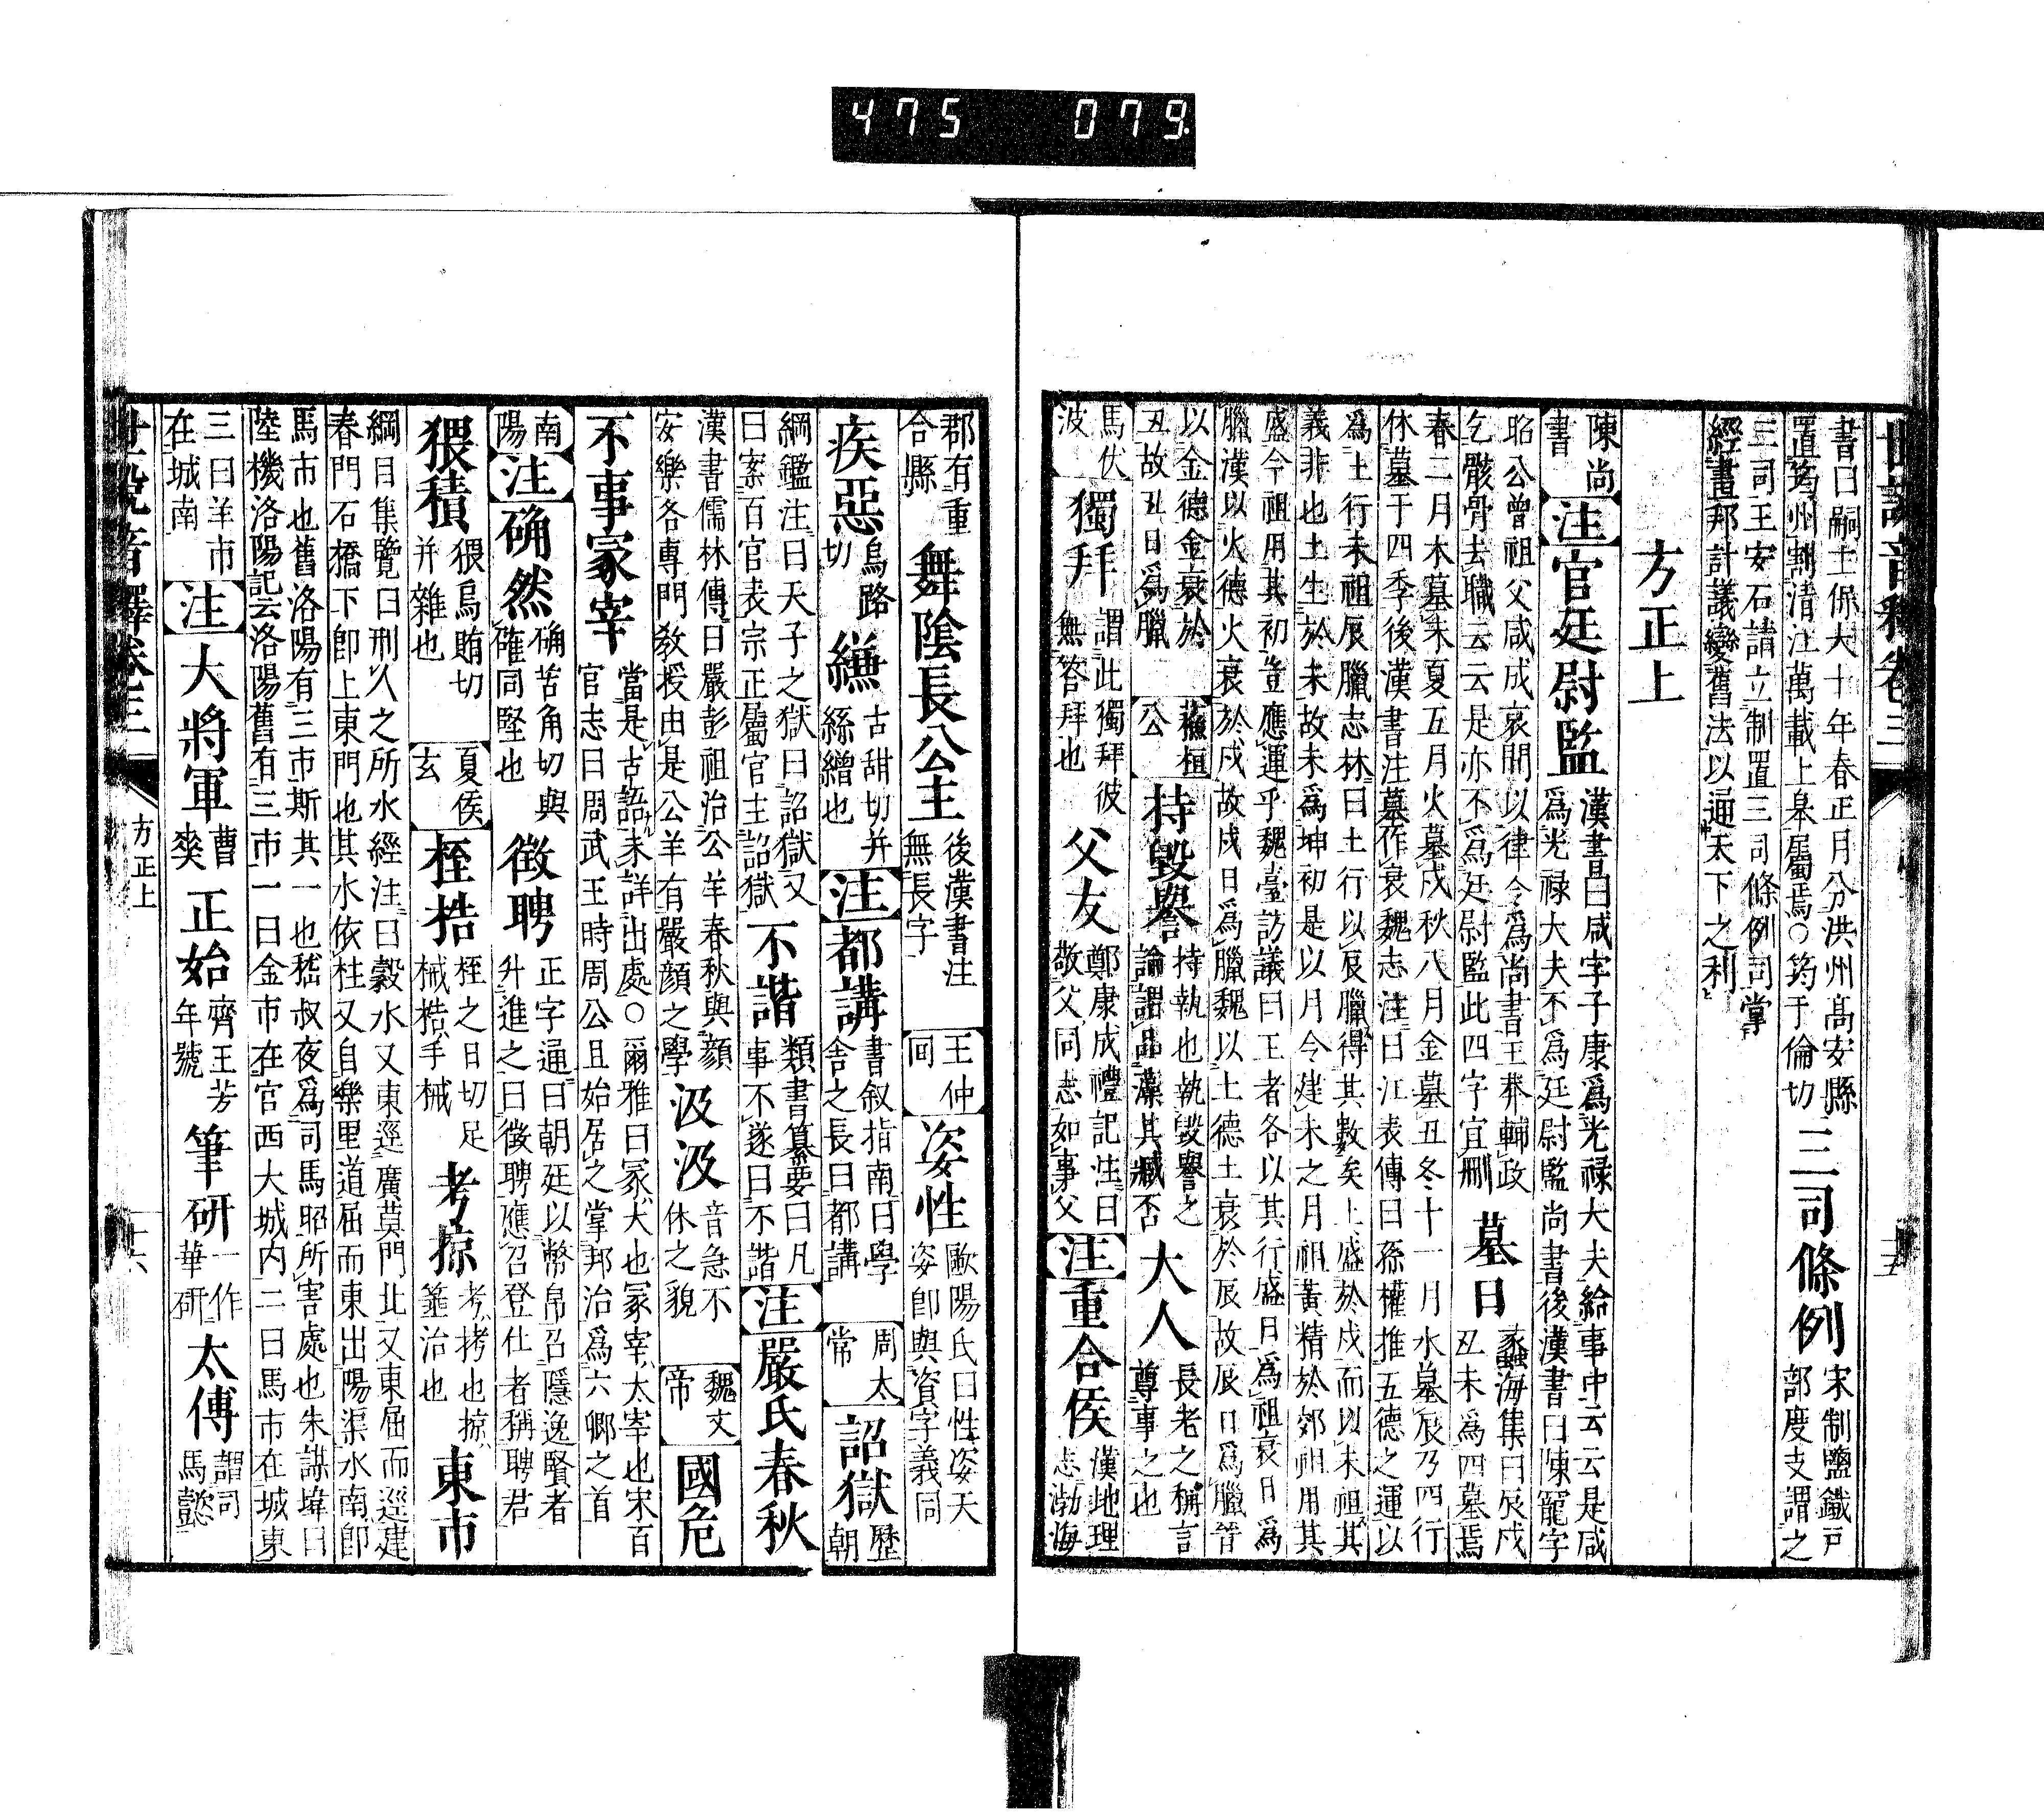 475 079.
世說音釋卷三
十五
書曰嗣主保大十年春正月分洪州高安縣
置筠州割清江萬載上皐屬焉○筠于倫切
三司條例
宋制鹽鐵戸
部度支謂之
三司王安石請立制置三司條例司掌
經畫邦計議變舊法以通天下之利
方正上
陳尚
書
注
官廷尉監
漢書曰咸字子康爲光祿大夫給事中云云是咸
爲光祿大夫不爲廷尉監尚書後漢書曰陳寵字
昭公曾祖父咸成哀間以律令爲尚書王莽輔政
乞骸骨去職云云是亦不爲廷尉監此四字宜刪
墓日
蠡海集曰辰戍
丑未爲四墓焉
春二月木墓未夏五月火墓戍秋八月金墓丑冬十一月水墓辰乃四行
休墓于四季後漢書注墓作衰魏志注曰江表傳曰孫權推五德之運以
爲土行未祖辰臘志林曰土行以辰臘得其數矣土盛於戍而以未祖其
義非也土生於未故未爲坤初是以月令建未之月祖黃精於郊祖用其
盛今祖用其初豈應運乎魏臺訪議曰王者各以其行盛日爲祖衰日爲
臘漢以火德火衰於戍故戍日爲臘魏以土德土衰於辰故辰日爲臘晉
以金德金衰於
丑故丑日爲臘
蘇桓
公
持毀譽
持執也執毀譽之
論謂品藻其臧否
大人
長老之稱言
尊事之也
馬伏
波
獨拜
謂此獨拜彼
無答拜也
父友
鄭康成禮記注曰
敬父同志如事父
注
重合侯
漢地理
志渤海
郡有重
合縣
舞陰長公主
後漢書注
無長字
王仲
回
姿性
歐陽氏曰性姿天
姿卽與資字義同
疾惡
烏路
切
縑
古甜切并
絲繒也
注
都講
書叙指南曰學
舍之長曰都講
周太
常
詔獄
歷朝
綱鑑注曰天子之獄曰詔獄又
曰案百官表宗正屬官主詔獄
不諧
類書纂要曰凡
事不遂曰不諧
注
嚴氏春秋
漢書儒林傳曰嚴彭祖治公羊春秋與顏
安樂各專門敎授由是公羊有嚴顏之學
汲汲
音急不
休之貌
魏文
帝
國危
不事冢宰
當是古語未詳出處○爾雅曰冢大也冢宰太宰也宋百
官志曰周武王時周公旦始居之掌邦治爲六卿之首
南
陽
注
确然
确苦角切與
確同堅也
徵聘
正字通曰朝廷以幣帛召隱逸賢者
升進之曰徵聘應召登仕者稱聘君
猥積
猥烏賄切
并雜也
夏侯
玄
桎梏
桎之日切足
械梏手械
考掠
考拷也掠
箠治也
東市
綱目集覽曰刑人之所水經注曰穀水又東逕廣莫門北又東屈而逕建
春門石橋下卽上東門也其水依柱又自樂里道屈而東出陽渠水南卽
馬市也舊洛陽有三市斯其一也嵇叔夜爲司馬昭所害處也朱謀㙔曰
陸機洛陽記云洛陽舊有三市一曰金市在官西大城内二曰馬市在城東
三曰羊市
在城南
注
大將軍
曹
爽
正始
齊王芳
年號
筆研
一作
華研
太傅
謂司
馬懿
世說音釋卷三
方正上
十六